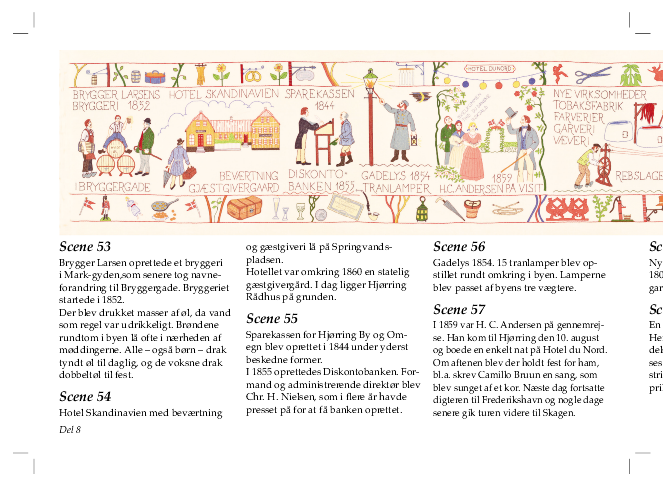 BRYGGER LARSENS
BRYGGERI 1852
I BRYGGERGADE
HOTEL SKANDINAVIEN
BEVÆRTNING
GJÆSTGIVERGAARD
SPAREKASSEN
1844
DISKONTO-
BANKEN 1855
GADELYS 1854
TRANLAMPER
HOTEL DU NORD
1859
H.C. ANDERSEN PÅ VISIT
NYE VIRKSOMHEDER
TOBAKSFABRIK
FARVERIER
GARVERI
VÆVERI
REBSLAGE
Scene 53
Brygger Larsen oprettede et bryggeri
i Mark-gyden,som senere tog navne-
forandring til Bryggergade. Bryggeriet
startede i 1852.
Der blev drukket masser af øl, da vand
som regel var udrikkeligt. Brøndene
rundtom i byen lå ofte i nærheden af
møddingerne. Alle – også børn – drak
tyndt øl til daglig, og de voksne drak
dobbeltøl til fest.
Scene 54
Hotel Skandinavien med beværtning
Del 8
og gæstgiveri lå på Springvands-
pladsen.
Hotellet var omkring 1860 en statelig
gæstgivergård. I dag ligger Hjørring
Rådhus på grunden.
Scene 55
Sparekassen for Hjørring By og Om-
egn blev oprettet i 1844 under yderst
beskedne former.
I 1855 oprettedes Diskontobanken. For-
mand og administrerende direktør blev
Chr. H. Nielsen, som i flere år havde
presset på for at få banken oprettet.
Scene 56
Gadelys 1854. 15 tranlamper blev op-
stillet rundt omkring i byen. Lamperne
blev passet af byens tre vægtere.
Scene 57
I 1859 var H. C. Andersen på gennemrej-
se. Han kom til Hjørring den 10. august
og boede en enkelt nat på Hotel du Nord.
Om aftenen blev der holdt fest for ham,
bl.a. skrev Camillo Bruun en sang, som
blev sunget af et kor. Næste dag fortsatte
digteren til Frederikshavn og nogle dage
senere gik turen videre til Skagen.
Sc
Ny
180
gar
Sc
En
He
del
ses
stri
pri